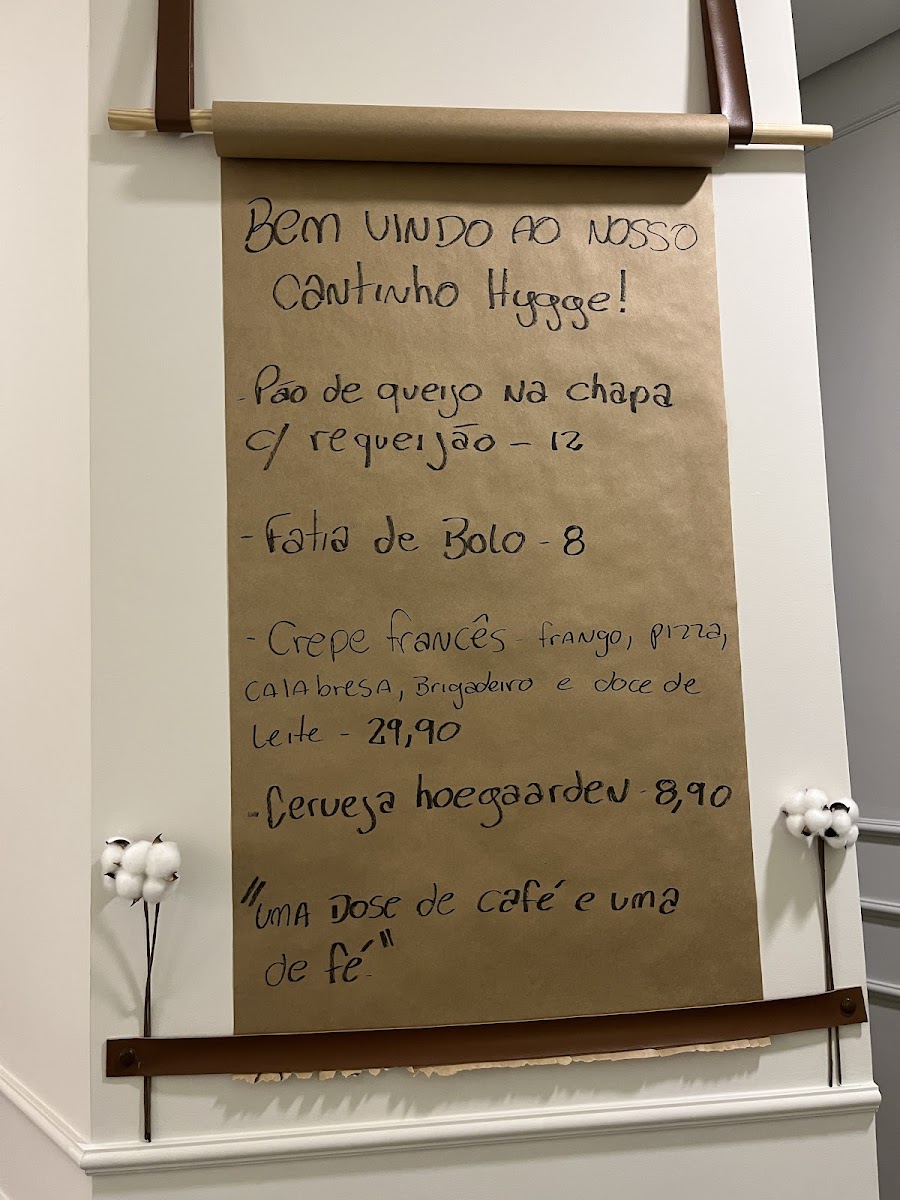 Bem vindo ao nosso
cantinho Hygge!
- Pão de queijo na chapa
c/ requeijão - 12
- Fatia de Bolo - 8
- Crepe francês - frango, pizza,
calabresa, Brigadeiro e doce de
Leite - 29,90
- Cerveja hoegaarden - 8,90
"Uma Dose de café e uma
de fé."